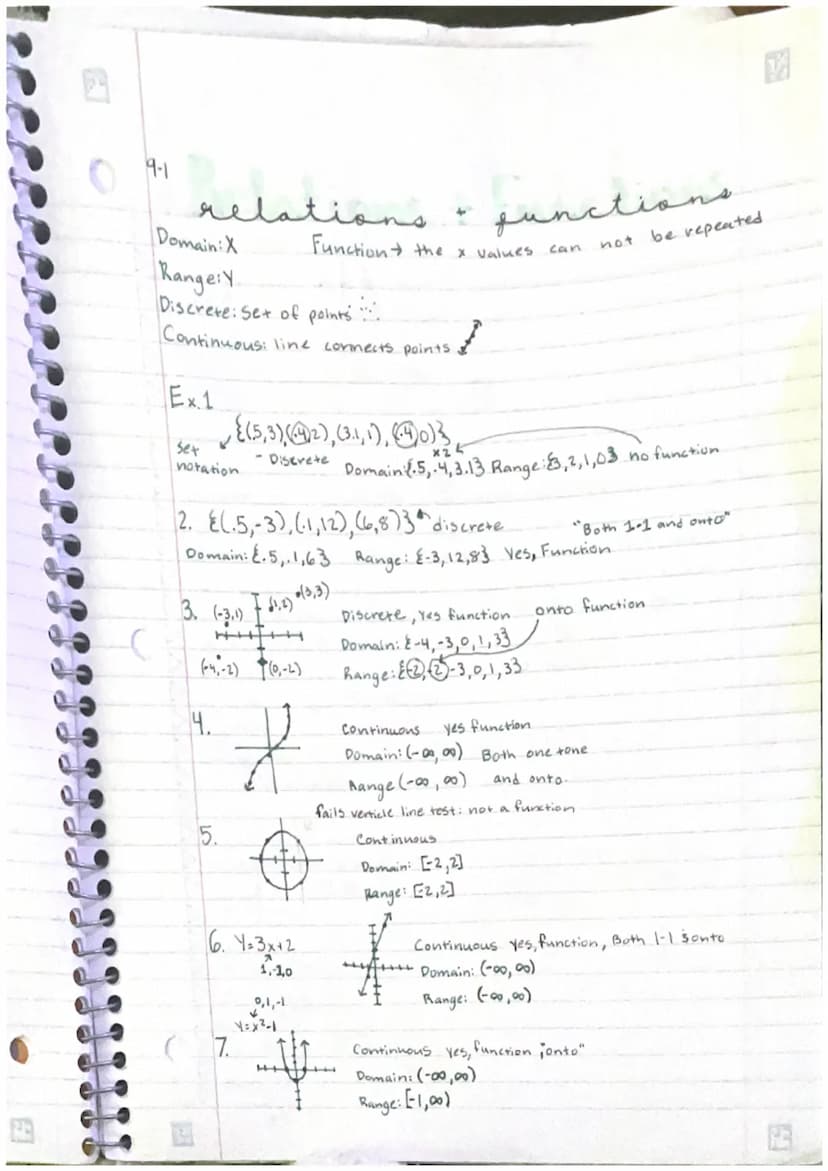 9-1
relations + functions
Domain: X Function → the x values can not be repeated
Range: Y
Discrete: Set of points
Continuous: line connects points
Ex. 1
{(.5,3)(-.4,2),(3.1,1),(-.4,0)}
set notation - Discrete x2
Domain: {.5,-.4,3.1} Range: {3,2,1,0} no function
2. {(.5,-3),(.1,12),(6,8)} discrete "Both 1-1 and onto"
Domain: {.5,.1,6} Range: {-3,12,8} Yes, Function
3. (-3,1) (1,2) (3,3) Discrete, Yes function onto function
Domain: {-4,-3,0,1,3}
(-4,-2) (0,-2) Range: {-2,-2,-3,0,1,3}
4. Continuous yes function
Domain: (-∞,∞) Both one tone
Range (-∞,∞) and onto.
fails verticle line test: not a function
5. Continuous
Domain: [-2,2]
Range: [-2,2]
6. Y=3x+2 Continuous yes, function, Both 1-1 & onto
1,-1,0 Domain: (-∞,∞)
Range: (-∞,∞)
0,1,-1
Y=x²-1
7. Continuous yes, function "onto"
Domain: (-∞,∞)
Range: [-1,∞)